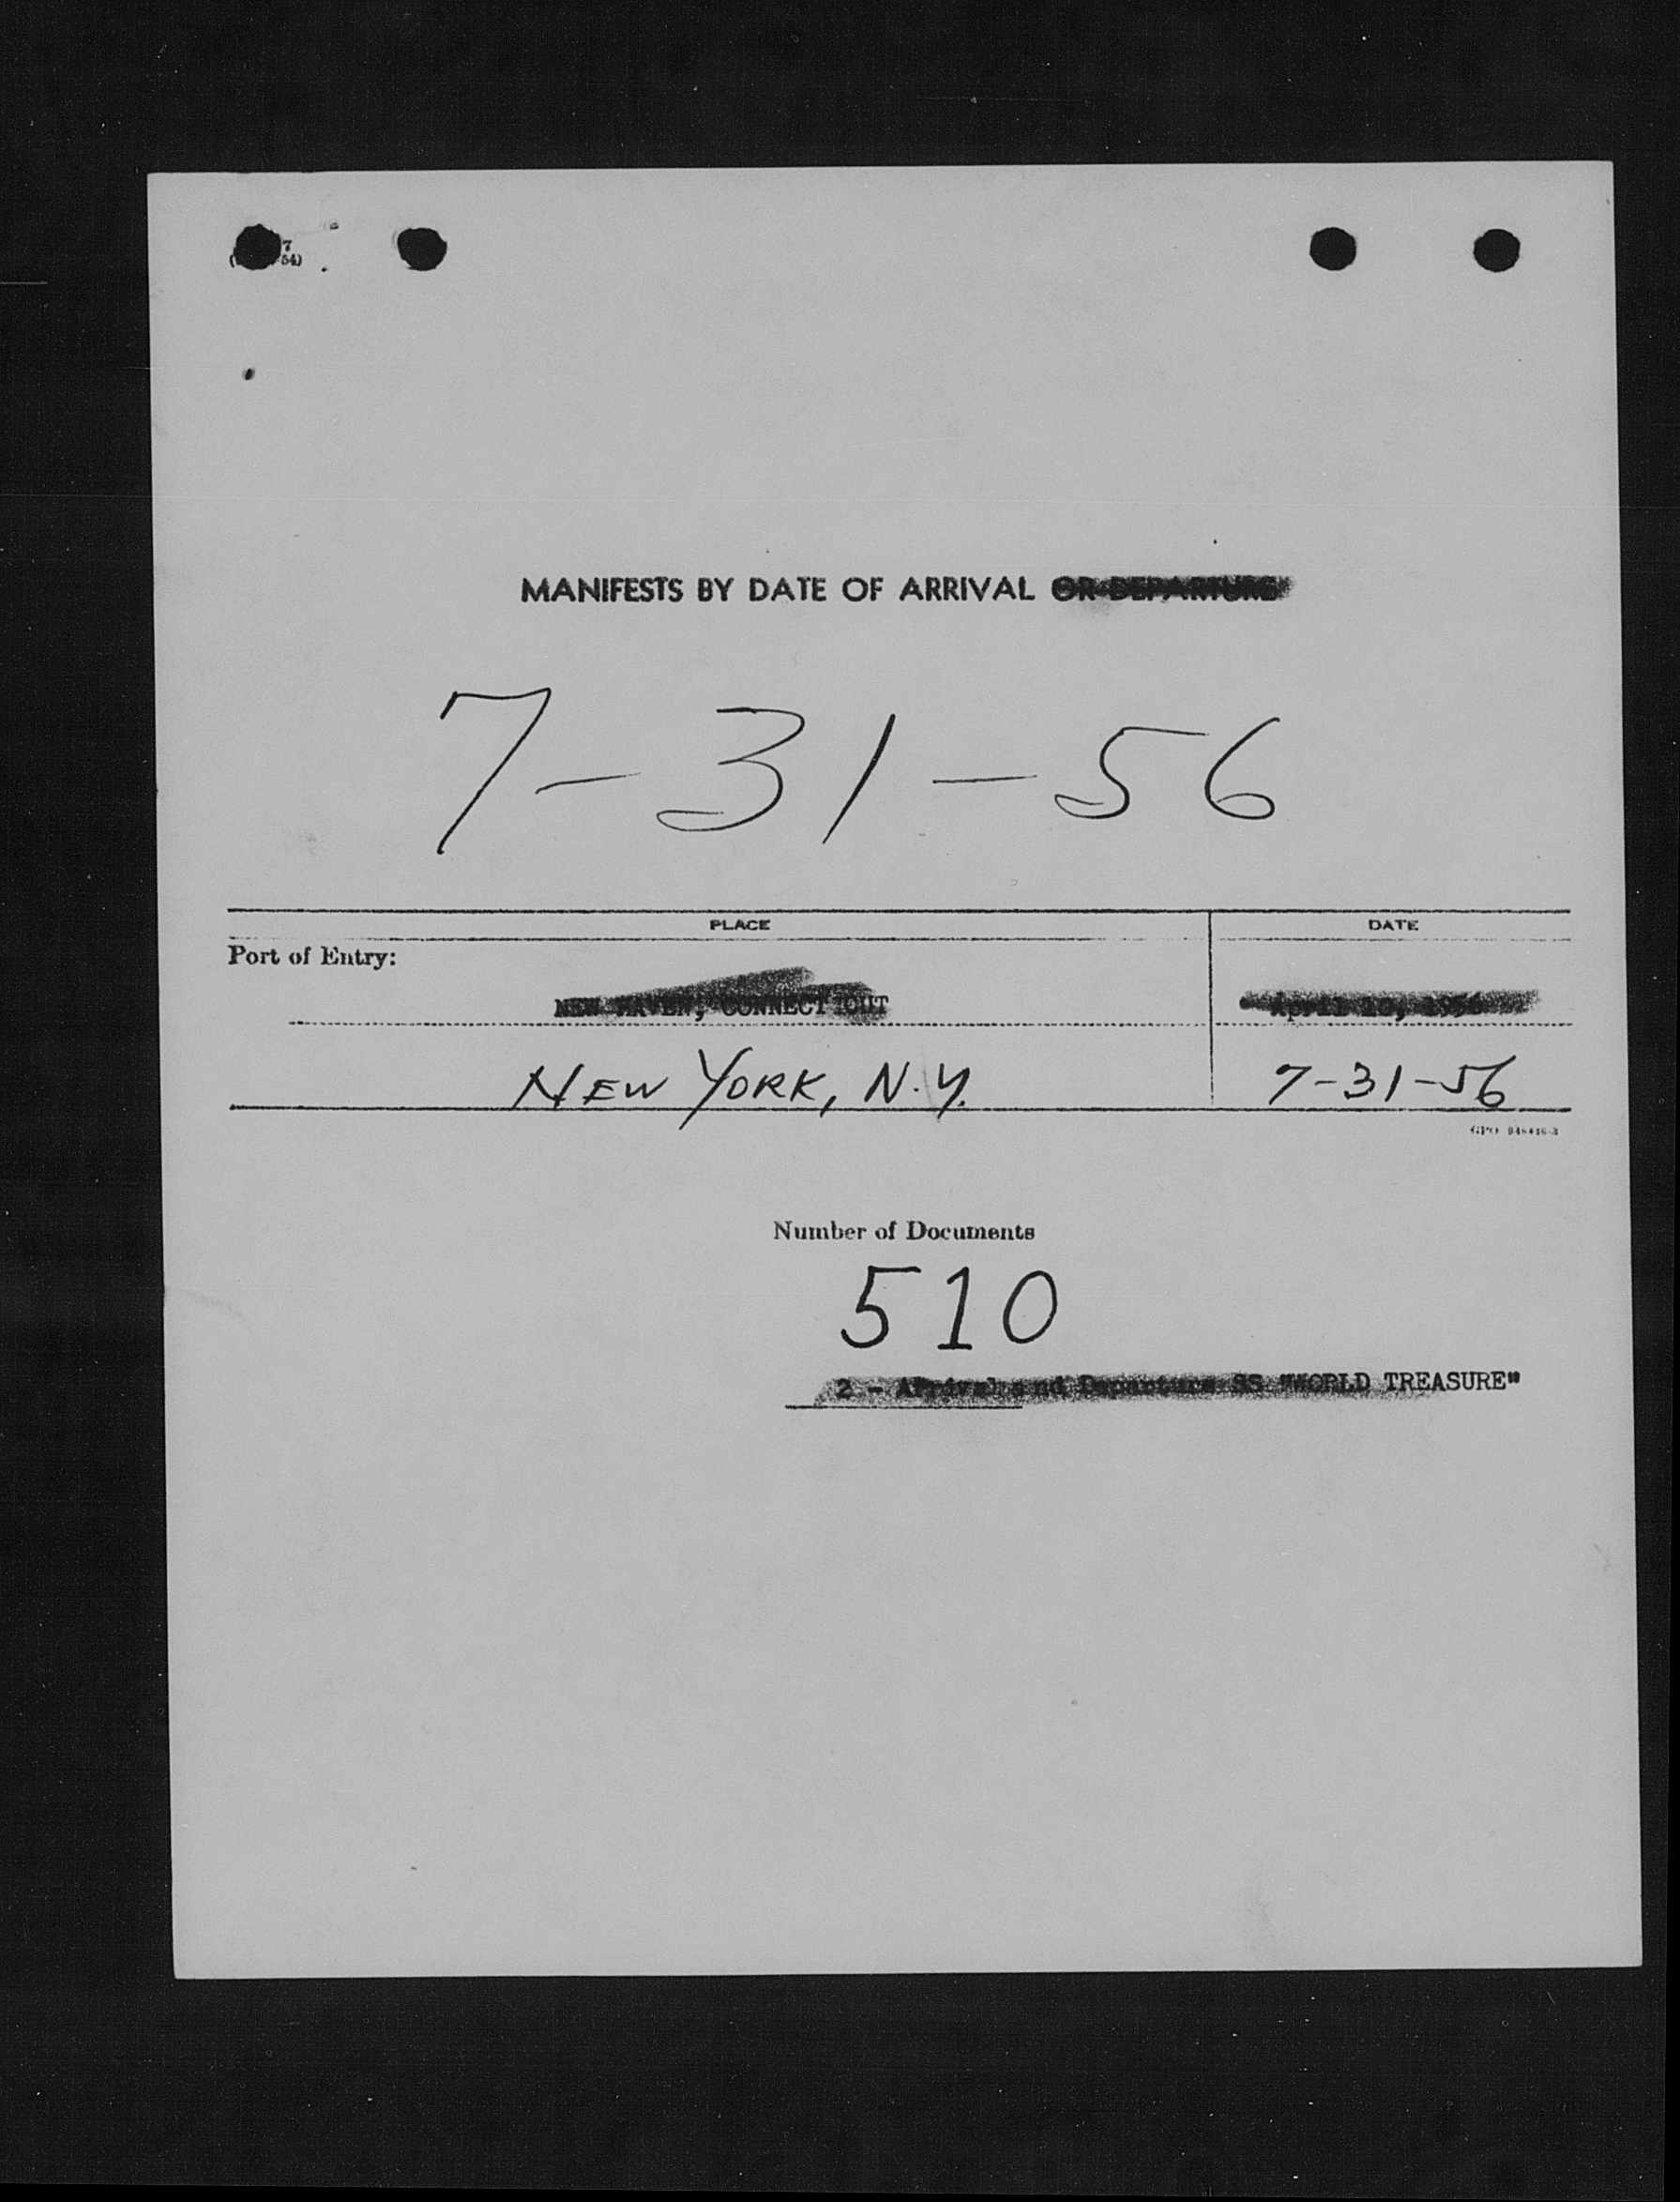 7
54)
MANIFESTS BY DATE OF ARRIVAL OR DEPARTURE
7-31-56
PLACE DATE
Port of Entry:
NEW HAVEN, CONNECTICUT April 1956
NEW YORK, N.Y. 7-31-56
GPO
Number of Documents
510
2 - Arrival and Departure SS "WORLD TREASURE"